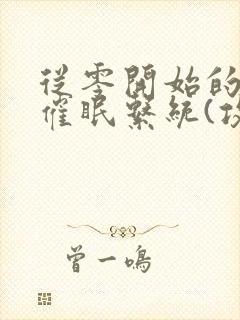 從零開始的
催眠繫統(
曾一鳴